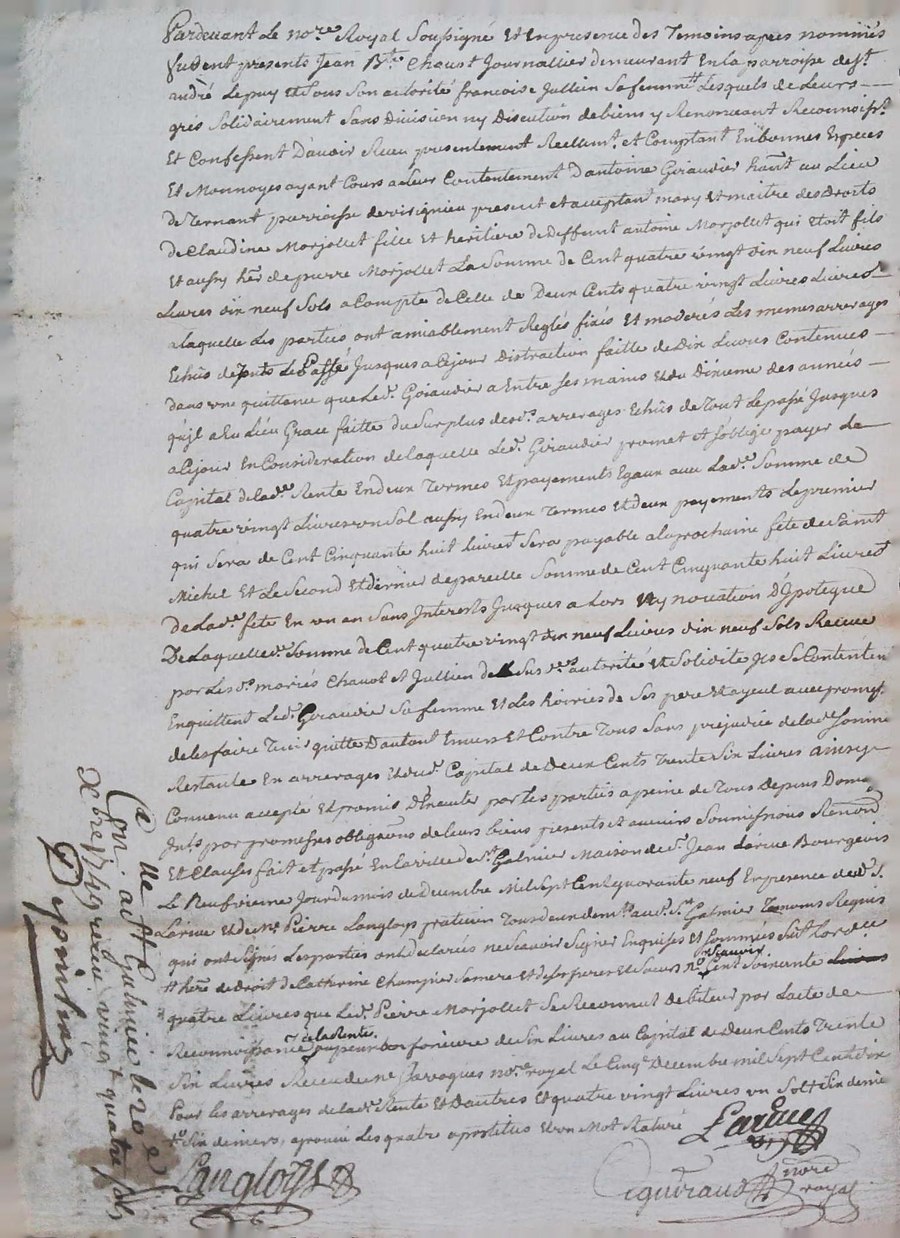 Pardevant Le nore Royal Soussigné Et En presence des Temoins apres nommés
furent presents Jean Bte Chaust Journallier demeurant En la parroisse de st
andré Lepuy Et Sous Son autorité francoise Jullien Sa femme Lesquels de Leurs
grés Solidairement Sans Division ny Discution de biens y Renonceant
Et Confessent D'avoir Receu presentement Reellemt et Comptant En bonnes Especes
Et Monnoyes ayant Cours a Leur Contentement D'antoine Giraudier hant au Lieu
de Ternant parroisse de virignieu present et acceptant mary et maitre des Droits
de Claudine Morjollet fille Et heritiere de Deffunt antoine Morjollet qui Etoit fils
Et aussy her de pierre Morjollet La Somme de Cent quatre vingt dix neuf Livres
Livres dix neuf Sols a Compte de Celle de Deux Cents quatre vingt Livres Livres
a laquelle Les parties ont amiablement Reglés fixés Et moderés Les memes arrerages
Echûs de Touts Le Passé Jusques a Cejour Distraction faitte de Dix Livres Contenues
dans une quittance que Led. Giraudier a Entre ses mains Et du Dixieme des années
qu'jl a Eu Lieu Grace faitte du Surplus desd. arrerages Echûs de Tout Le passé Jusques
a Cejour En Consideration de laquelle Led. Giraudier promet Et s'oblige payer Le
Capital de lade Rente En deux Termes Et payements Egaux avec Lade Somme de
quatre vingt Livres un Sol aussy En deux Termes Et deux payements Le premier
qui Sera de Cent Cinquante huit Livres Sera payable a la prochaine fête de Saint
Michel Et Le Second Et dernier de pareille Somme de Cent Cinquante huit Livres
de Lade fête En un an Sans Interests Jusques a Lors Ny novation D'ypoteque
De Laquelle de Somme de Cent quatre vingt dix neuf Livres dix neuf Sols Receue
par Les ds mariés Chaust et Jullien de Susdes autorité Et Solidité jls se Contentent
En quittent Led. Giraudier Sa femme Et Les hoiries de Ses pere Et ayeul avec promesse
de les faire Tenir quitte D'autant Envers Et Contre Tous Sans prejudice de lade Somme
Restante En arrerages Et dud. Capital de Deux Cents Trente Six Livres ainsy
Convenu accepté Et promis D'Executer par les parties a peine de Tous Depens Doma
Ints par promesses obligaons de leurs biens presents Et avenirs Soumissions Renonons
Et Clauses fait et passé En la ville de st Galmier Maison de sr Jean Larue Bourgeois
Le Neufvieme Jour du mois de Decembre Mil Sept Cent quarante neuf En presence dedt S.
Larue Et de Me Pierre Langloys praticien Tous deux demts aud. st Galmier Temoins Requis
qui ont Signés Les parties ont declarés ne Scavoir Signer Enquises Et Sommées
her de droit de Catherine Champier Sa mere Et de Ses freres Et Soeurs a Scavoir Cent Soixante
quatre Livres que Led. Pierre Morjollet Se Reconnut debiteur par L'acte de
Reconnoissance Et La Rente fonciere de Six Livres au Capital de deux Cents Trente
Six Livres Receu de me Jarroques nore royal Le Cinqe Decembre mil Sept Cent dix
Pour les arrerages de lade Rente Et D'autres Et quatre vingt Livres un Sol Six denie
Six deniers, aprouvé Les quatre apostilles Et un Mot Raturé
Larue
Langloys
Cigueraud nore royal
Ctlle A st Galmier le 20 e
Xbre 1749 receu vingt quatre sols